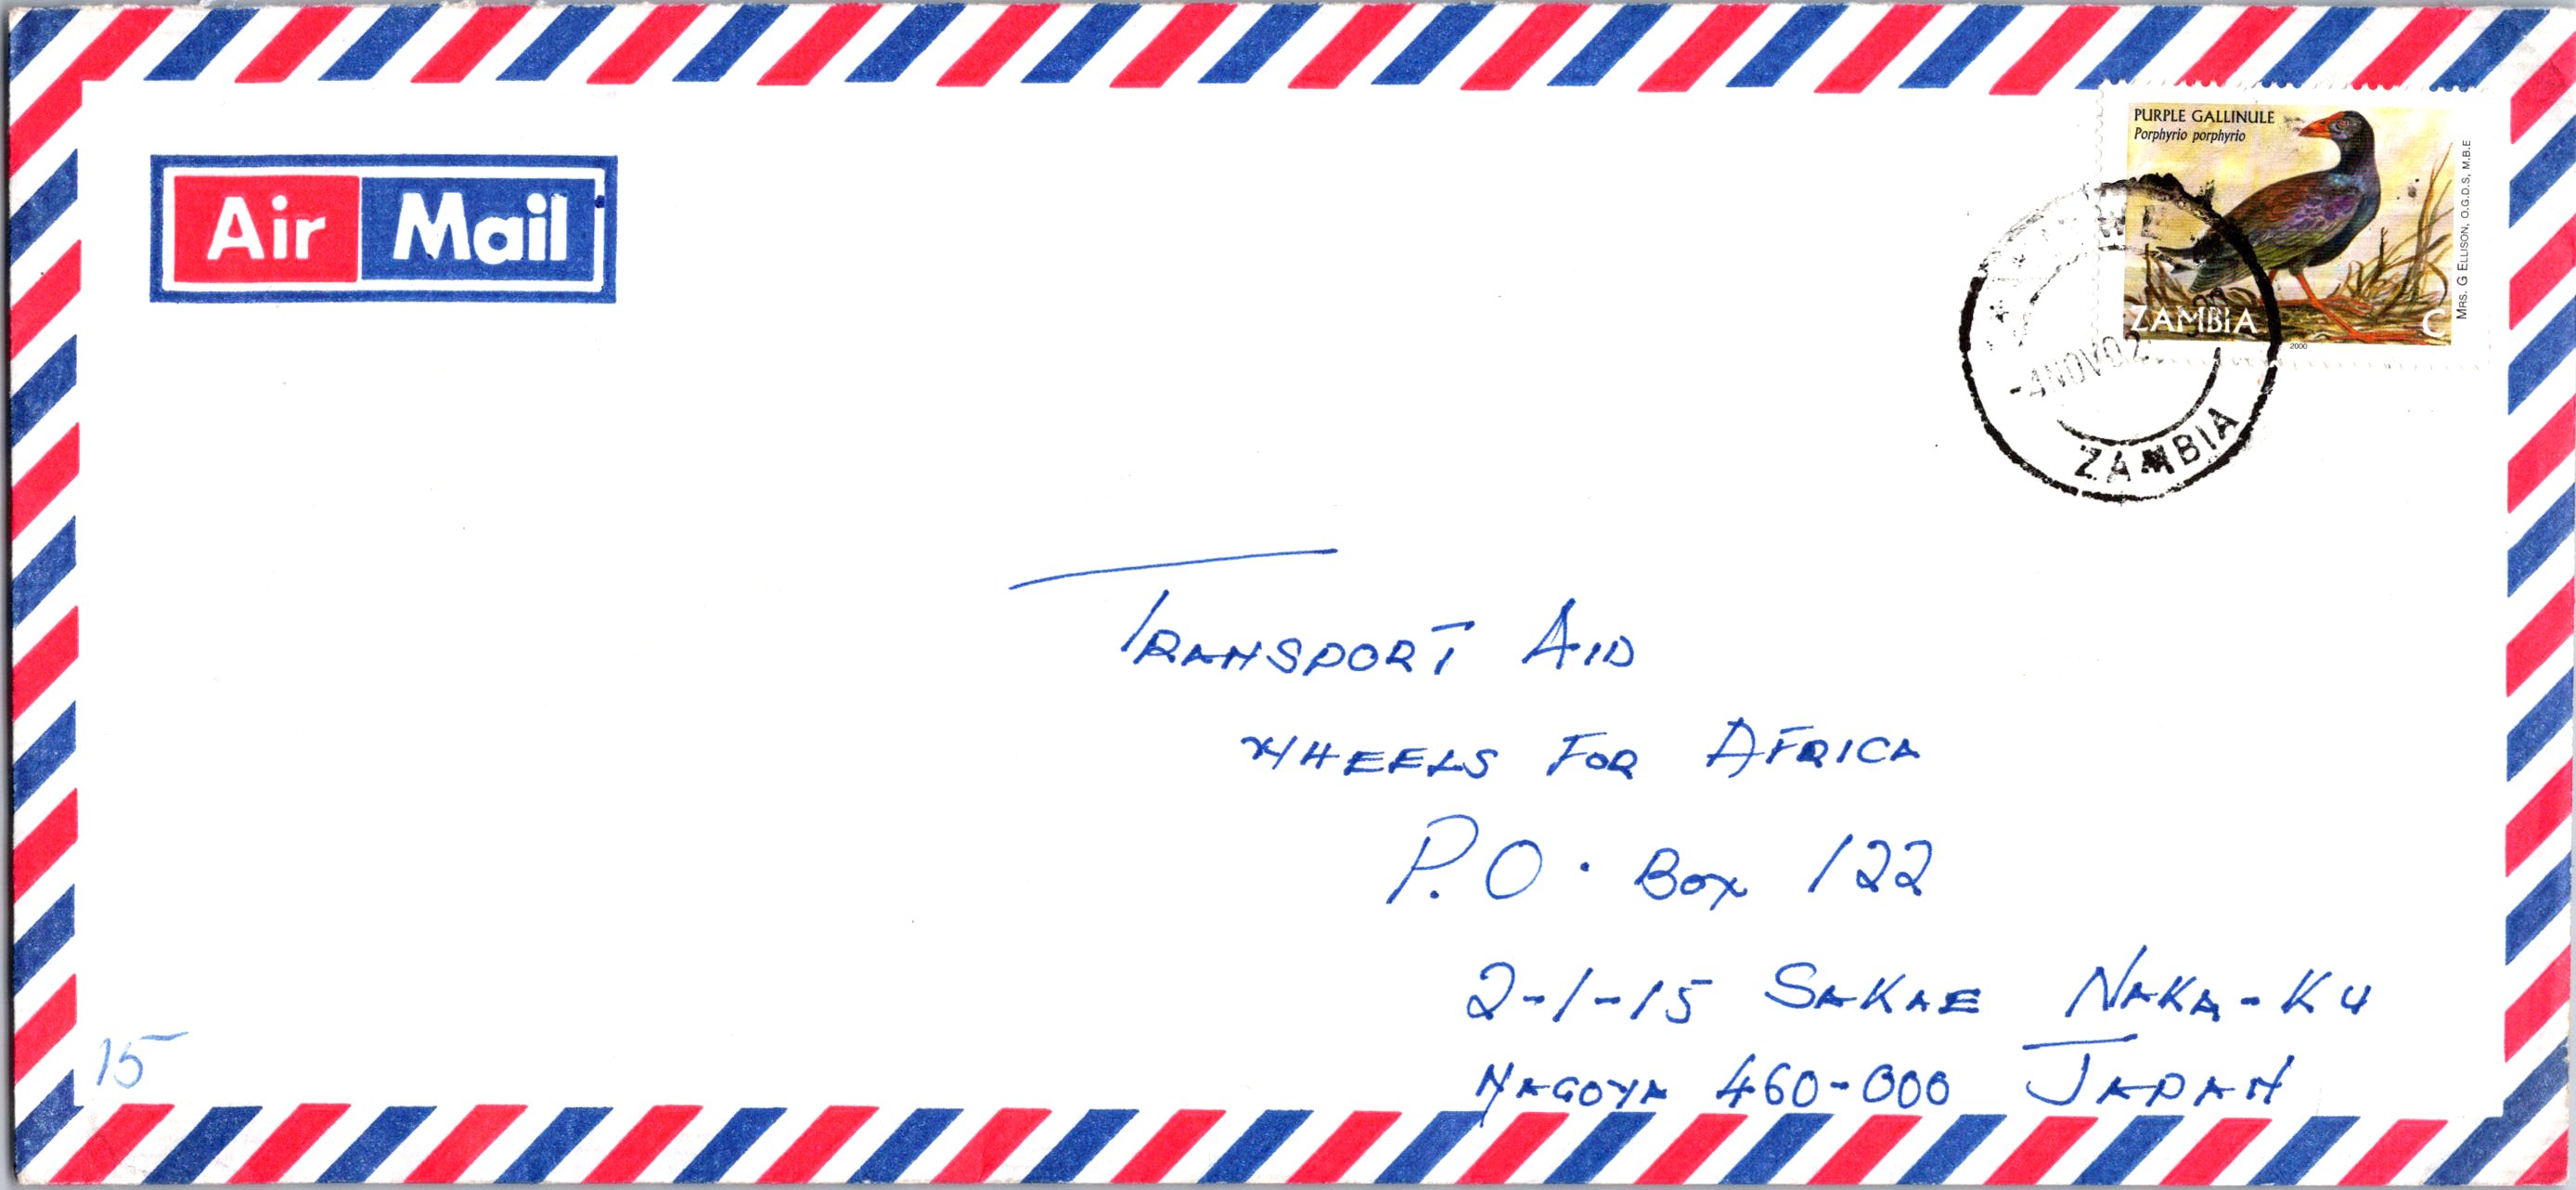 Air Mail
PURPLE GALLINULE
Porphyrio porphyrio
MRS. G ELLISON, O.G.D.S, M.B.E
ZAMBIA C
2000
NOV02
ZAMBIA
TRANSPORT AID
WHEELS FOR AFRICA
P.O. Box 122
2-1-15 SAKAE NAKA-KU
NAGOYA 460-000 JAPAN
15